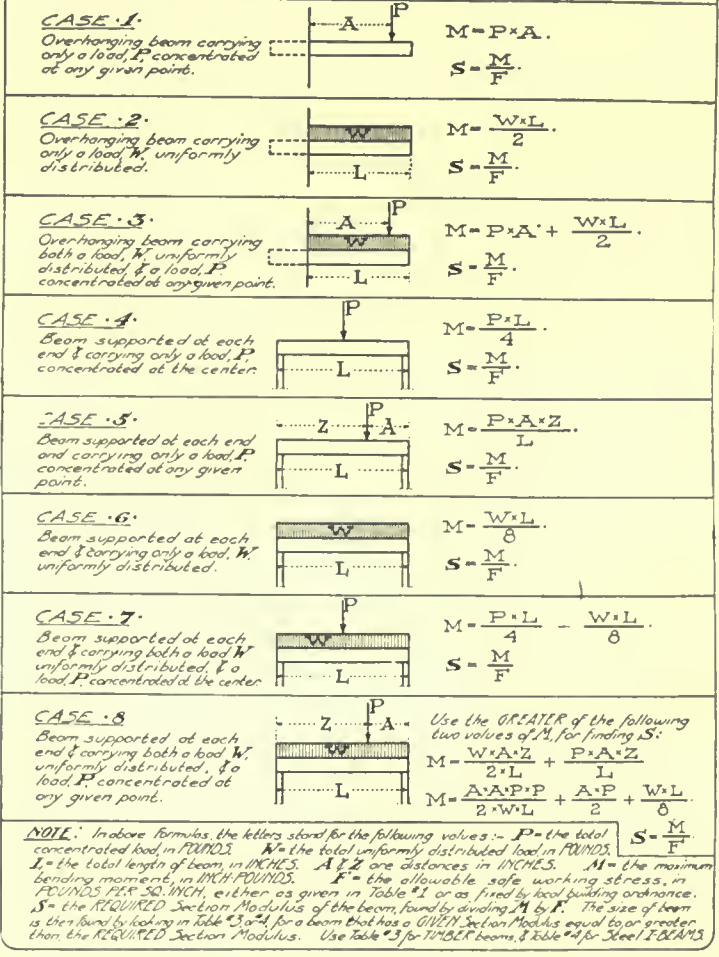 CASE ·1·
Overhanging beam carrying
only a load, P, concentrated
at any given point.
A
P
M=P×A.
S=M/F.
CASE ·2·
Overhanging beam carrying
only a load, W, uniformly
distributed.
W
L
M=W×L/2.
S=M/F.
CASE ·3·
Overhanging beam carrying
both a load, W, uniformly
distributed, & a load, P,
concentrated at any given point.
A
P
W
L
M=P×A·+ W×L/2.
S=M/F.
CASE ·4·
Beam supported at each
end & carrying only a load, P,
concentrated at the center.
P
L
M=P×L/4.
S=M/F.
CASE ·5·
Beam supported at each end
and carrying only a load, P,
concentrated at any given
point.
Z
P
A
L
M=P×A×Z/L.
S=M/F.
CASE ·6·
Beam supported at each
end & carrying only a load, W,
uniformly distributed.
W
L
M=W×L/8.
S=M/F.
CASE ·7·
Beam supported at each
end & carrying both a load W
uniformly distributed, & a
load, P, concentrated at the center.
P
W
L
M=P×L/4 – W×L/8.
S=M/F
CASE ·8
Beam supported at each
end & carrying both a load W,
uniformly distributed, & a
load, P, concentrated at
any given point.
Z
P
A
W
L
Use the GREATER of the following
two values of M, for finding S:
M=W×A×Z/2×L + P×A×Z/L
M=A×A×P×P/2×W×L + A×P/2 + W×L/8.
S=M/F.
NOTE: In above formulas, the letters stand for the following values:- P=the total
concentrated load, in POUNDS. W=the total uniformly distributed load, in POUNDS.
L=the total length of beam, in INCHES. A & Z are distances in INCHES. M=the maximum
bending moment, in INCH-POUNDS. F=the allowable safe working stress, in
POUNDS PER SQ. INCH, either as given in Table #1 or as fixed by local building ordnance.
S=the REQUIRED Section Modulus of the beam, found by dividing M by F. The size of beam
is then found by looking in Table #3, or #4, for a beam that has a GIVEN Section Modulus equal to, or greater
than, the REQUIRED Section Modulus. Use Table #3 for TIMBER beams, & Table #4 for Steel I-BEAMS